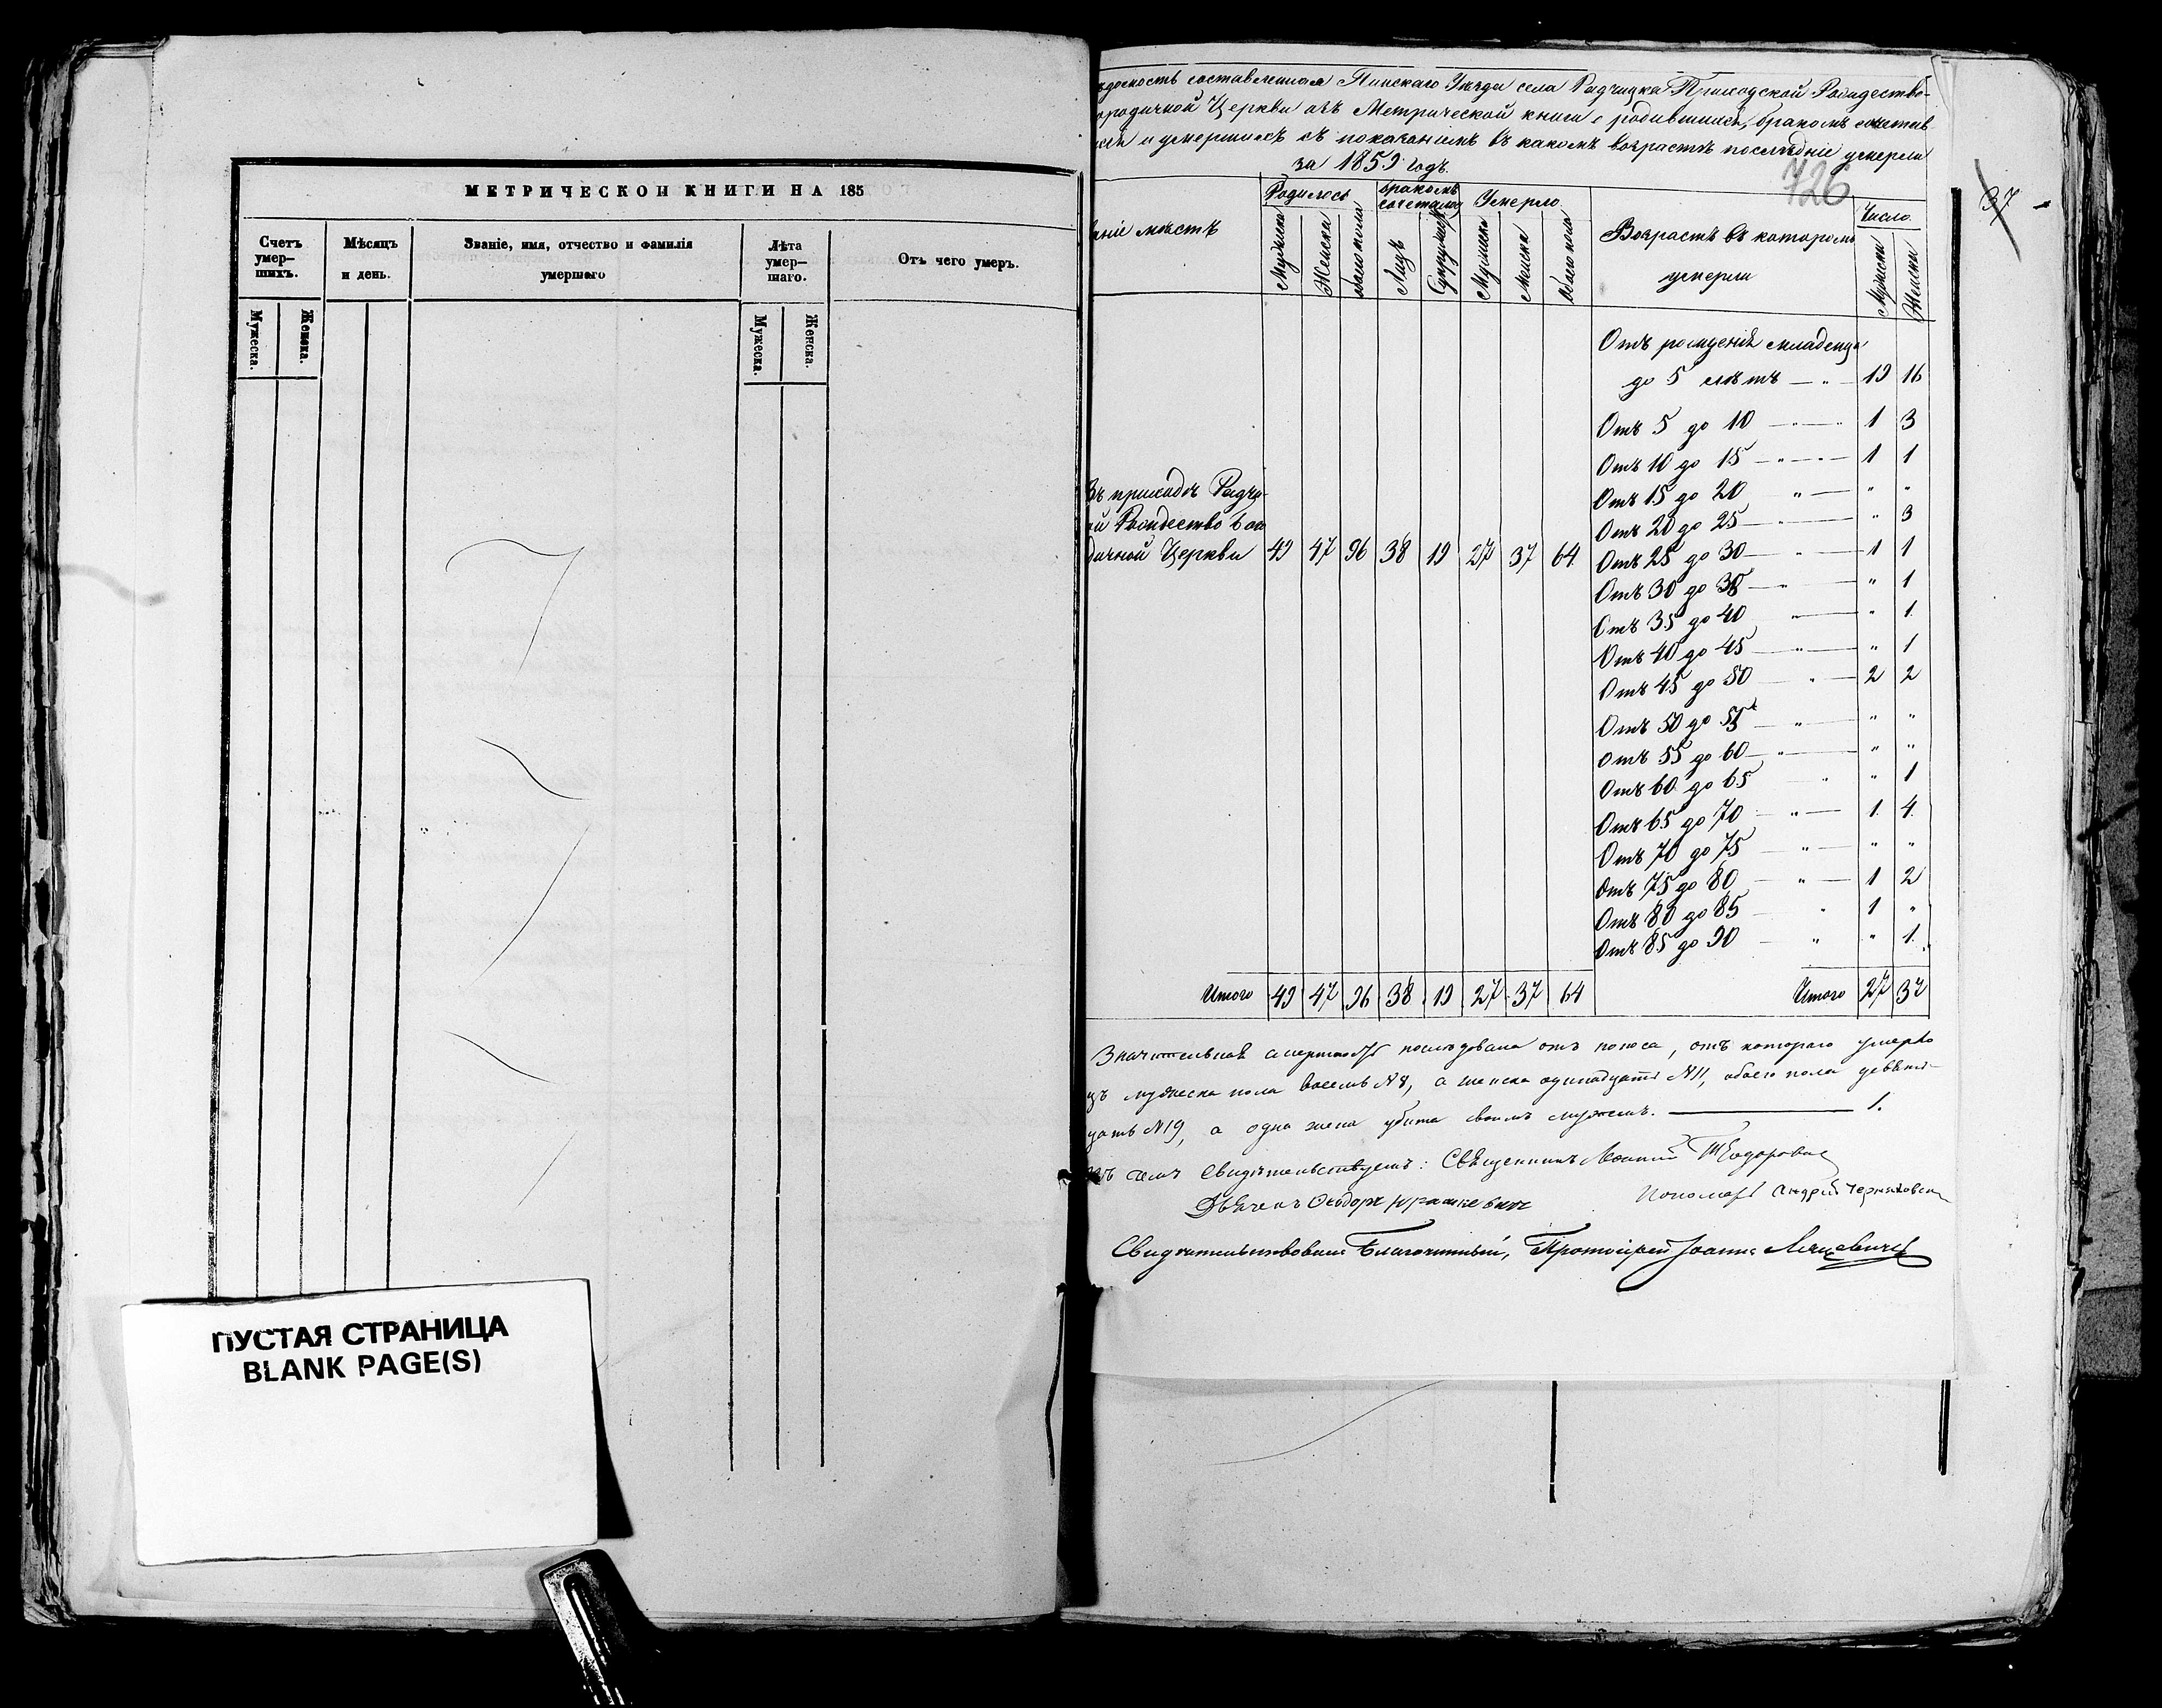 МЕТРИЧЕСКОЙ КНИГИ НА 185
Счетъ умер-
шихъ.
Мѣсяцъ
и день.
Званіе, имя, отчество и фамилія
умершаго
Лѣта
умер-
шаго.
Отъ чего умеръ.
Мужеска.
Женска.
Мужеска.
Женска.
ПУСТАЯ СТРАНИЦА
BLANK PAGE(S)
составленная Пинскаго Уѣзда села Радчицка Приходской Рождество-
Церкви изъ Метрической книги о родившихся, бракомъ сочетав-
и умершихъ съ показаніемъ въ какомъ возрастѣ послѣдніе умерли
за 1859 годъ.
726
37
мѣстъ
Родилось
бракомъ
сочеталось
Умерло
Возрастъ въ которомъ
умерли
Число
Мужска
Женска
обоего пола
Лицъ
Супружествъ
Мужска
Женска
обоего пола
Мужска
Женска
Отъ рожденія младенца
до 5 лѣтъ — " — 19 16
Отъ 5 до 10 — " — " 1 3
Отъ 10 до 15 — " — " 1 1
Отъ 15 до 20 " — " "
Отъ 20 до 25 — " — " 3
Отъ 25 до 30 — " — 1 1
Отъ 30 до 35 — " — " 1
Отъ 35 до 40 " — " 1
Отъ 40 до 45 — " — " 1
Отъ 45 до 50 — " — 2 2
Отъ 50 до 55 — " — " "
Отъ 55 до 60 — " — " "
Отъ 60 до 65 " " 1
Отъ 65 до 70 — " — 1 4
Отъ 70 до 75 — " — " "
Отъ 75 до 80 — " — 1 2
Отъ 80 до 85 — " 1 "
Отъ 85 до 90 — " " 1
Въ приходѣ Радчи-
Рождество Бого
дичной Церкви 49 47 96 38 19 27 37 64
Итого 49 47 96 38 19 27 37 64
Итого 27 37
Значительная смертность послѣдовала отъ поноса, отъ котораго умерло
мужеска пола восемь N 8, а женска одинадцать N 11, обоего пола девят-
цать N 19, а одна жена убита своимъ мужемъ. — 1.
Въ семъ свидѣтельствуемъ: Священникъ Теодоровичъ
Дьячекъ Ѳеодоръ Юрашкевичъ
Пономарь Андрей Черняковскій
Свидѣтельствовалъ Благочинный, Протоіерей Іоаннъ